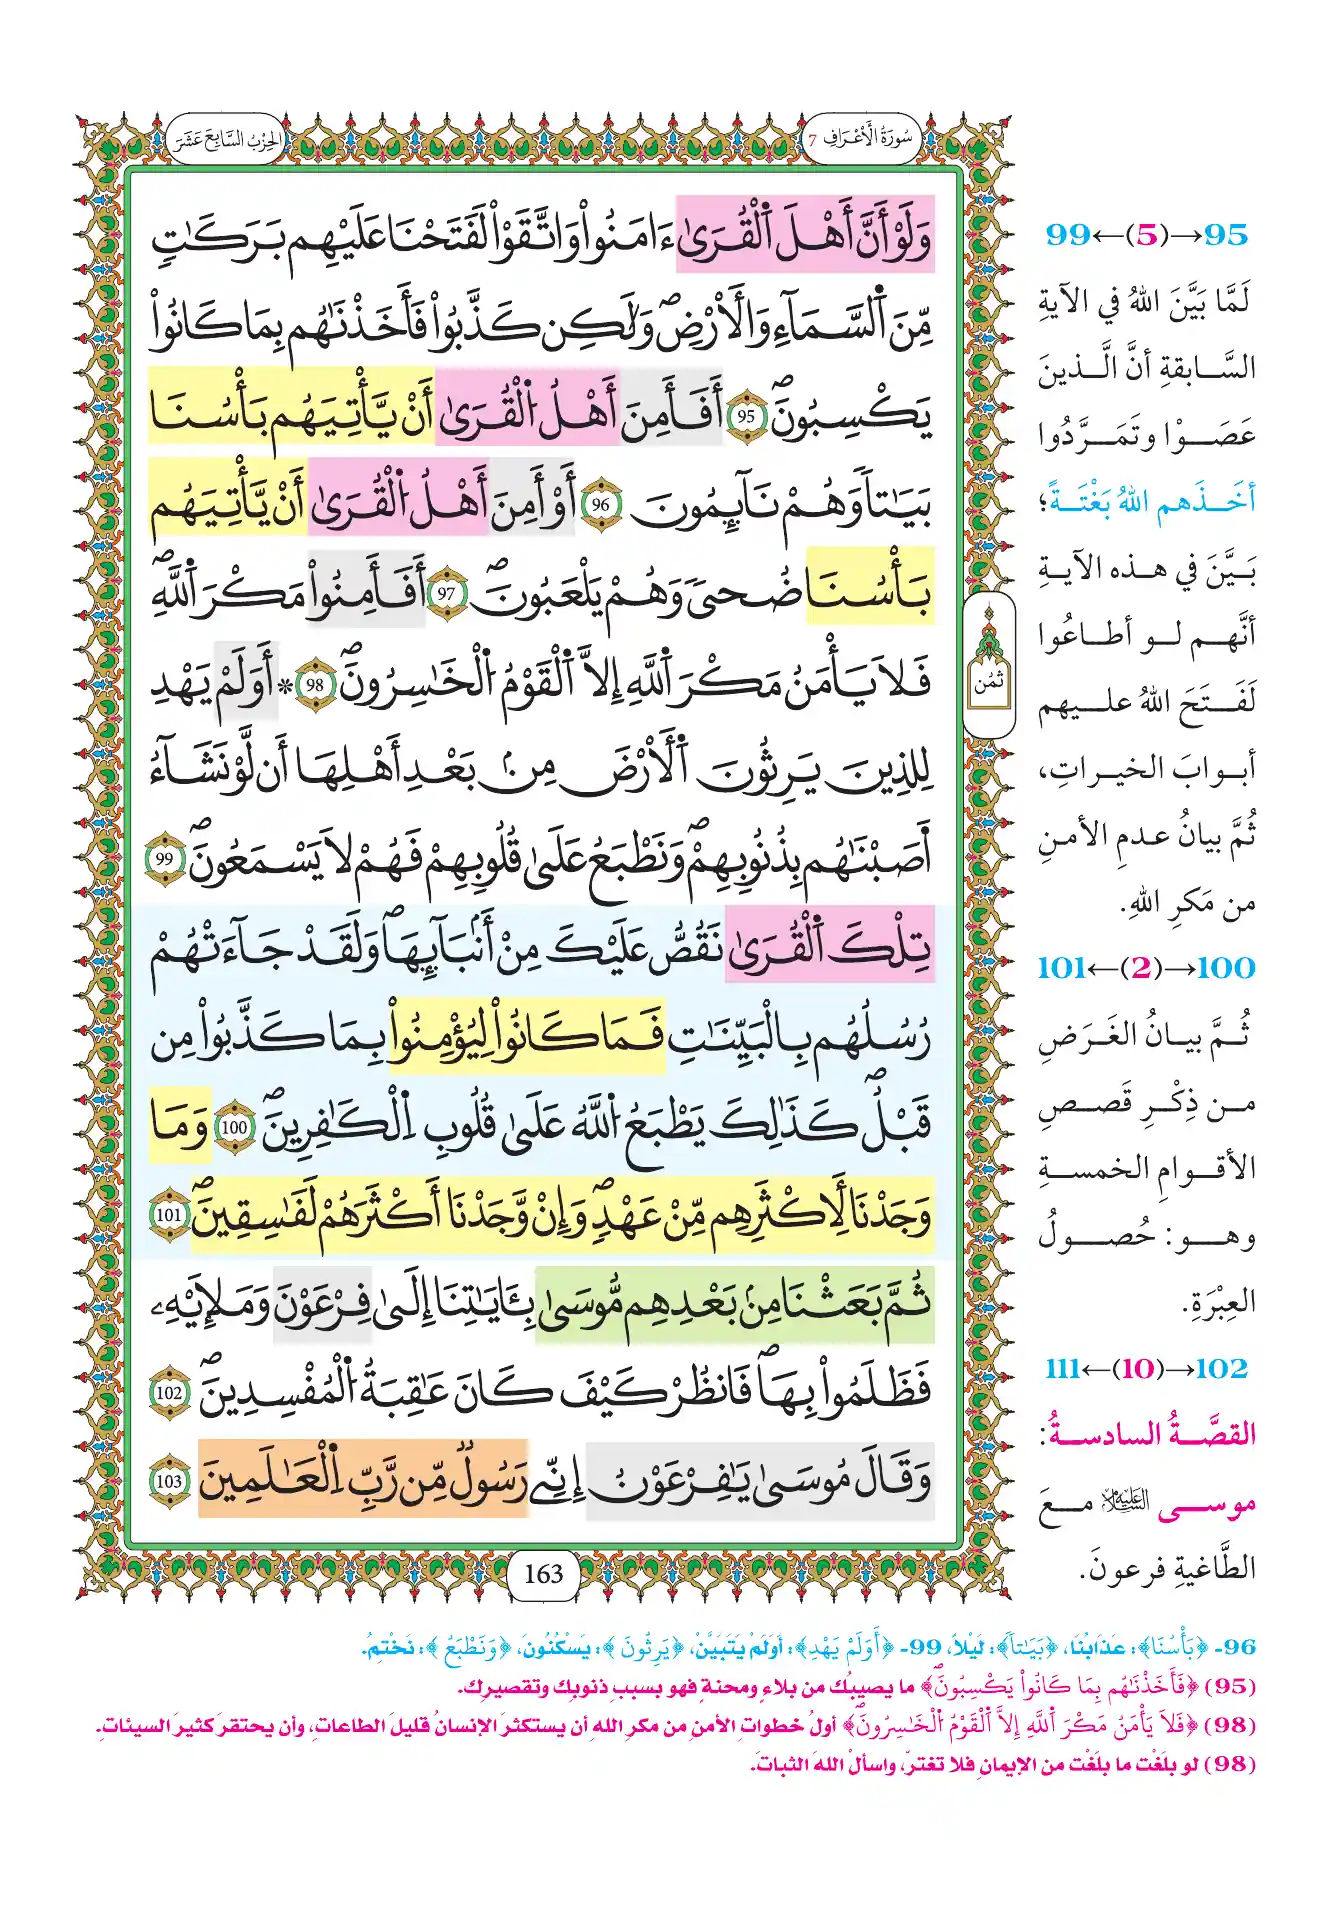 سُورَةُ الْأَعْرَافِ 7
الحِزْبُ السَّابِعَ عَشَرَ
وَلَوْ أَنَّ أَهْلَ اَلْقُرَىٰ ءَامَنُواْ وَاتَّقَوْاْ لَفَتَحْنَا عَلَيْهِم بَرَكَٰتٍ
مِّنَ اَلسَّمَآءِ وَالْأَرْضِ وَلَٰكِن كَذَّبُواْ فَأَخَذْنَٰهُم بِمَا كَانُواْ
يَكْسِبُونَ 95 أَفَأَمِنَ أَهْلُ اُلْقُرَىٰ أَنْ يَّأْتِيَهُم بَأْسُنَا
بَيَٰتاً وَهُمْ نَآئِمُونَ 96 أَوْ أَمِنَ أَهْلُ اُلْقُرَىٰ أَنْ يَّأْتِيَهُم
بَأْسُنَا ضُحىً وَهُمْ يَلْعَبُونَ 97 أَفَأَمِنُواْ مَكْرَ اَللَّهِ
فَلَا يَأْمَنُ مَكْرَ اَللَّهِ إِلَّا اَلْقَوْمُ اُلْخَٰسِرُونَ 98 * أَوَلَمْ يَهْدِ
لِلذِينَ يَرِثُونَ اَلْأَرْضَ مِنۢ بَعْدِ أَهْلِهَا أَن لَّوْ نَشَآءُ
أَصَبْنَٰهُم بِذُنُوبِهِمْ وَنَطْبَعُ عَلَىٰ قُلُوبِهِمْ فَهُمْ لَا يَسْمَعُونَ 99
تِلْكَ اَلْقُرَىٰ نَقُصُّ عَلَيْكَ مِنْ أَنۢبَآئِهَا وَلَقَدْ جَآءَتْهُمْ
رُسُلُهُم بِالْبَيِّنَٰتِ فَمَا كَانُواْ لِيُؤْمِنُواْ بِمَا كَذَّبُواْ مِن
قَبْلُ كَذَٰلِكَ يَطْبَعُ اُللَّهُ عَلَىٰ قُلُوبِ اِلْكَٰفِرِينَ 100 وَمَا
وَجَدْنَا لِأَكْثَرِهِم مِّنْ عَهْدٍ وَإِنْ وَّجَدْنَا أَكْثَرَهُمْ لَفَٰسِقِينَ 101
ثُمَّ بَعَثْنَا مِنۢ بَعْدِهِم مُّوسَىٰ بِـَٔايَٰتِنَا إِلَىٰ فِرْعَوْنَ وَمَلَإِيْهِۦ
فَظَلَمُواْ بِهَا فَانظُرْ كَيْفَ كَانَ عَٰقِبَةُ اُلْمُفْسِدِينَ 102
وَقَالَ مُوسَىٰ يَٰفِرْعَوْنُ إِنِّي رَسُولٌ مِّن رَّبِّ اِلْعَٰلَمِينَ 103
ثمُن
163
95→(5)←99
لَمَّا بَيَّنَ اللهُ في الآيةِ
السَّابقةِ أنَّ الَّذينَ
عَصَوْا وتَمَرَّدُوا
أخَذَهم اللهُ بَغْتَةً؛
بَيَّنَ في هذه الآيةِ
أنَّهم لو أطاعُوا
لَفَتَحَ اللهُ عليهم
أبوابَ الخيراتِ،
ثُمَّ بيانُ عدمِ الأمنِ
من مَكرِ اللهِ.
100→(2)←101
ثُمَّ بيانُ الغَرَضِ
من ذِكْرِ قَصصِ
الأقوامِ الخمسةِ
وهو: حُصولُ
العِبْرَةِ.
102→(10)←111
القصَّةُ السادسةُ:
موسى عليه السلام معَ
الطَّاغيةِ فرعونَ.
96- ﴿بَأْسُنَا﴾: عَذَابُنَا، ﴿بَيَٰتاً﴾: لَيْلاً، 99- ﴿أَوَلَمْ يَهْدِ﴾: أَوَلَمْ يَتَبَيَّنْ، ﴿يَرِثُونَ﴾: يَسْكُنُونَ، ﴿وَنَطْبَعُ﴾: نَخْتِمُ.
(95) ﴿فَأَخَذْنَٰهُم بِمَا كَانُواْ يَكْسِبُونَ﴾ ما يصيبُك من بلاءٍ ومحنةٍ فهو بسببِ ذنوبِك وتقصيرِك.
(98) ﴿فَلَا يَأْمَنُ مَكْرَ اَللَّهِ إِلَّا اَلْقَوْمُ اُلْخَٰسِرُونَ﴾ أولُ خطواتِ الأمنِ من مكرِ الله أن يستكثرَ الإنسانُ قليلَ الطاعاتِ، وأن يحتقرَ كثيرَ السيئاتِ.
(98) لو بلَغْت ما بلَغْت من الإيمانِ فلا تغترّ، واسألْ اللهَ الثباتَ.